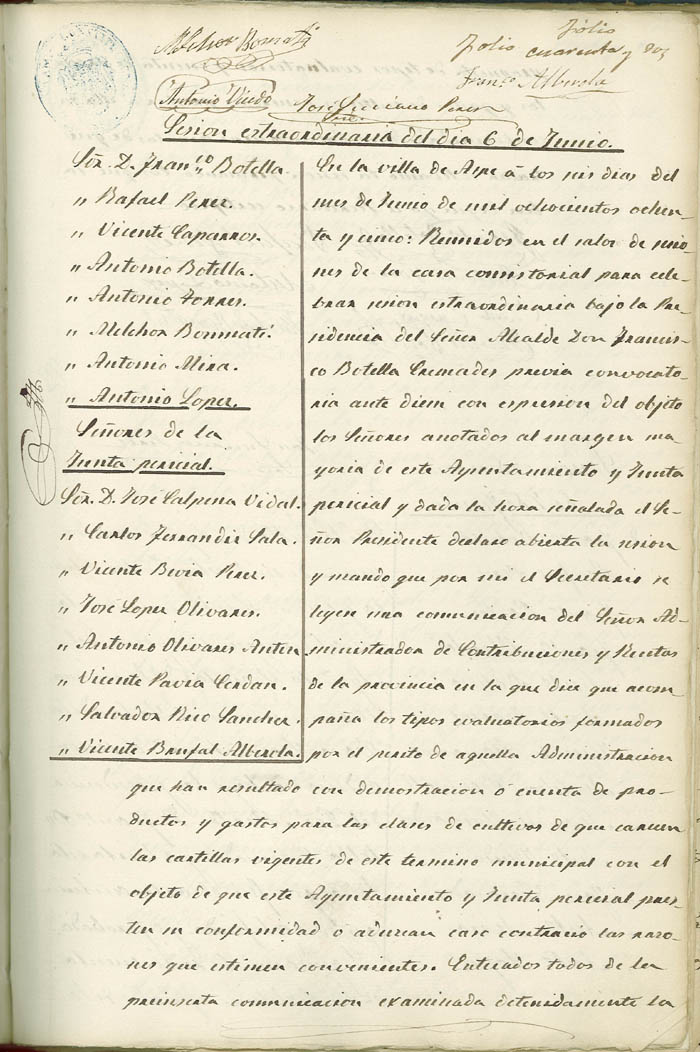 Melchor Bonmatí
Folio
Folio cuarenta y dos
Franco Alberola
Antonio Viudo José Luciano Perez
Srio.
Sesion extraordinaria del dia 6 de Junio.
Sor. D. Franco Botella.
" Rafael Perez.
" Vicente Caparros.
" Antonio Botella.
" Antonio Torres.
" Melchor Bonmatí.
" Antonio Mira.
" Antonio Lopez.
Señores de la
Junta pericial.
Sor. D. José Calpena Vidal.
" Carlos Ferrandiz Sala.
" Vicente Bevia Perez.
" José Lopez Olivares.
" Antonio Olivares Anton
" Vicente Pavia Cerdan.
" Salvador Rico Sanchez.
" Vicente Brufal Alberola.
En la villa de Aspe á los seis dias del
mes de Junio de mil ochocientos ochen-
ta y cinco: Reunidos en el salon de sesio-
nes de la casa consistorial para cele-
brar sesion extraordinaria bajo la Pre-
sidencia del Señor Alcalde Don Francis-
co Botella Cremades previa convocato-
ria ante diem con espresion del objeto
los Señores anotados al margen ma-
yoria de este Ayuntamiento y Junta
pericial y dada la hora señalada el Se-
ñor Presidente declaro abierta la sesion
y mando que por mi el Secretario se
leyese una comunicacion del Señor Ad-
ministrador de Contribuciones y Rentas
de la provincia en la que dice que acom
paña los tipos evaluatorios formados
por el perito de aquella Administracion
que han resultado con demostracion ó cuenta de pro-
ductos y gastos para las clases de cultivos de que carecen
las cartillas vigentes de este termino municipal con el
objeto de que este Ayuntamiento y Junta pericial pres-
ten su conformidad o aduzcan caso contrario las razo-
nes que estimen convenientes. Enterados todos de la
preinserta comunicacion examinada detenidamente la